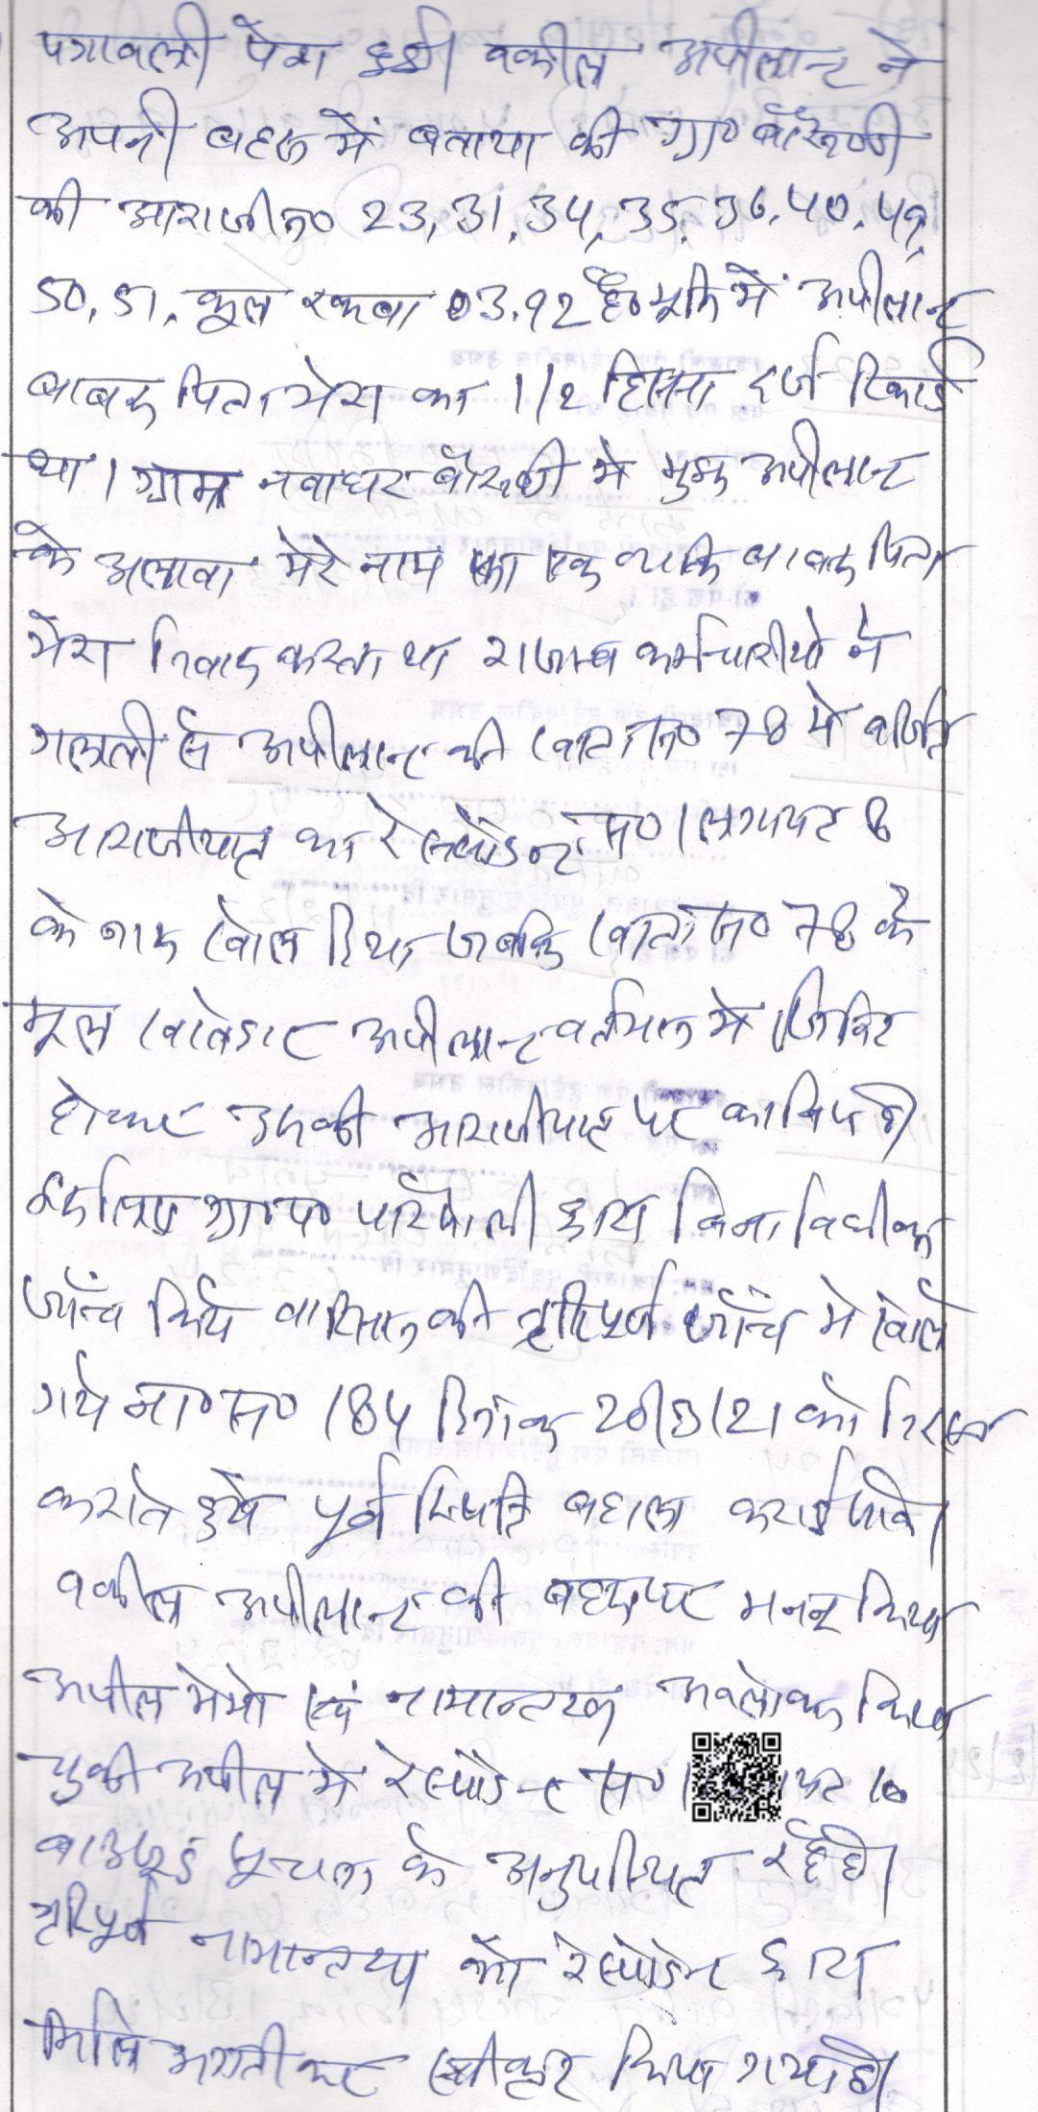 पत्रावली पेश हुई। वकील अपीलान्ट ने
अपनी बहस में बताया की ग्रा०
की आराजी न० 23, 31, 34, 35, 36, 40, 49,
50, 51, कुल रकबा 03.92 है० भूमि में अपीलान्ट
पिता का 1/2 हिस्सा दर्ज रिकार्ड
था। ग्राम नवाघर में मुझ अपीलान्ट
के अलावा मेरे नाम का एक व्यक्ति पिता
निवास करता था राजस्व कर्मचारीयो ने
गलती से अपीलान्ट की खाता न० 78 मे वर्णित
आराजीयात का रेस्पोडेन्ट स० 1 लगायत 8
के नाम खोल दिया जबकि खाता न० 78 के
मूल खातेदार अपीलान्ट वर्तमान मे जिवित
होकर उसकी आराजीयात पर काबिज है।
इसलिए ग्रा०प० द्वारा बिना विधीक
जाँच किये वारिसान की त्रुटिपूर्ण जाँच मे खोले
गये ना० स० 184 दिनांक 20/3/21 को निरस्त
कराते हुये पूर्व स्थिति बहाल कराई जावे।
वकील अपीलान्ट की बहस पर मनन किया
अपील मेमो एवं नामान्तरण अवलोकन किया
चुकी अपील मे रेस्पोडेन्ट स० 10
बाउजूद सूचना के अनुपस्थित रहे है।
त्रुटिपूर्ण नामान्तरण को रेस्पोडेन्ट द्वारा
मिलि भगती कर स्वीकृत किया गया है।